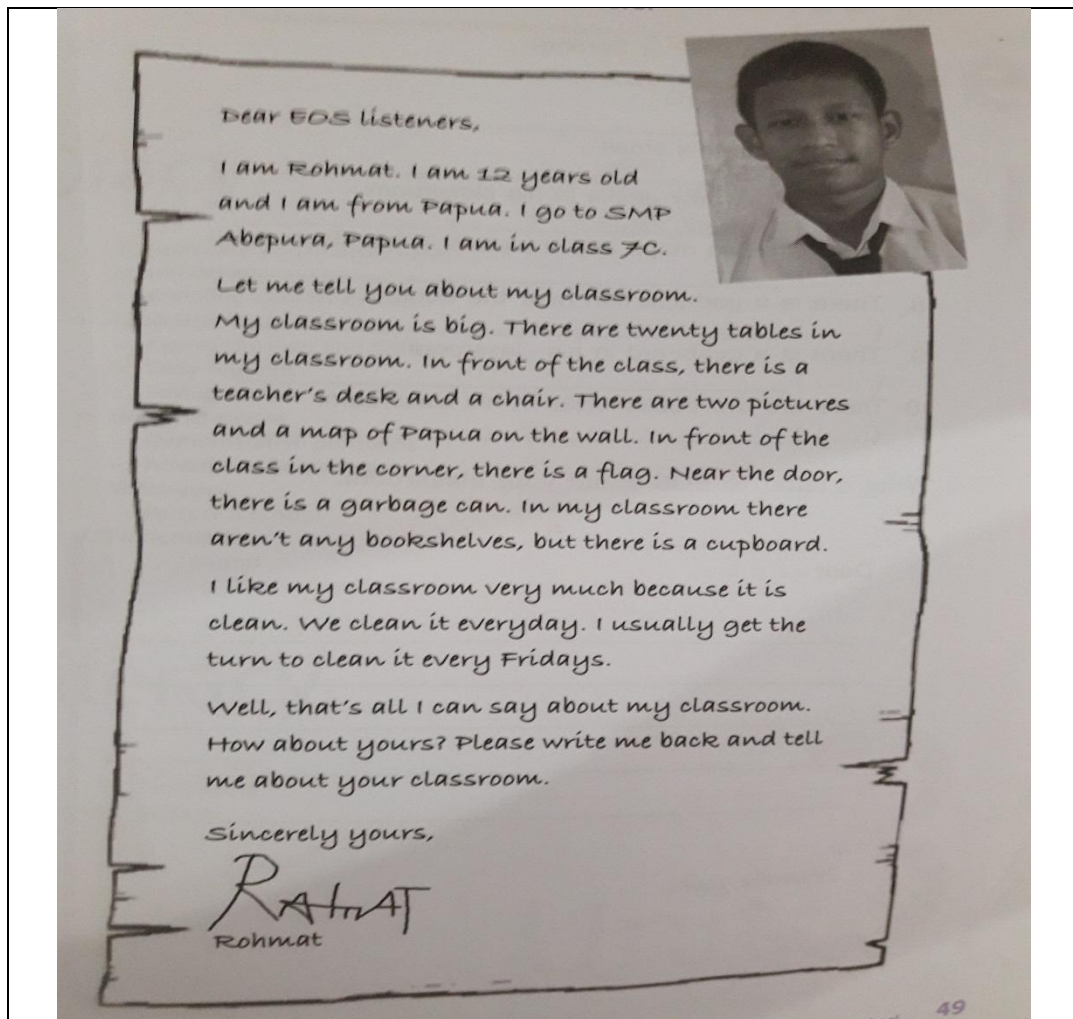 Dear EOS listeners,
I am Rohmat. I am 12 years old
and I am from Papua. I go to SMP
Abepura, Papua. I am in class 7C.
Let me tell you about my classroom.
My classroom is big. There are twenty tables in
my classroom. In front of the class, there is a
teacher's desk and a chair. There are two pictures
and a map of Papua on the wall. In front of the
class in the corner, there is a flag. Near the door,
there is a garbage can. In my classroom there
aren't any bookshelves, but there is a cupboard.
I like my classroom very much because it is
clean. We clean it everyday. I usually get the
turn to clean it every Fridays.
Well, that's all I can say about my classroom.
How about yours? Please write me back and tell
me about your classroom.
Sincerely yours,
Rohmat
49